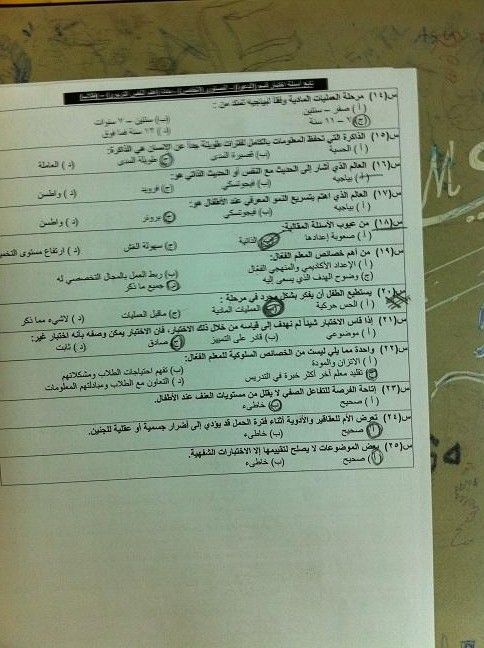 س(١٤) مرحلة العمليات المادية وفقا لبياجيه تمتد من :
أ) صفر – سنتين ب) سنتين – ٧ سنوات
ج) ٧ – ١١ سنة د) ١٢ سنة فما فوق
س(١٥) الذاكرة التي تحفظ المعلومات بالكامل لفترات طويلة جداً عن الإنسان هي الذاكرة:
أ) الحسية ب) قصيرة المدى ج) طويلة المدى د) العاملة
س(١٦) العالم الذي أشار إلى الحديث مع النفس أو الحديث الذاتي هو:
أ) بياجيه ب) فيجوتسكي ج) فرويد د) واطسن
س(١٧) العالم الذي اهتم بتسريع النمو المعرفي عند الأطفال هو:
أ) بياجيه ب) فيجوتسكي ج) برونر د) واطسن
س(١٨) من عيوب الأسئلة المقالية:
أ) صعوبة إعدادها ب) الذاتية ج) سهولة الغش د) ارتفاع مستوى التخمين
س(١٩) من أهم خصائص المعلم الفعّال:
أ) الإعداد الأكاديمي والمنهجي الفعّال ب) ربط العمل بالمجال التخصصي له
ج) وضوح الهدف الذي يسعى إليه د) جميع ما ذكر
س(٢٠) يستطيع الطفل أن يفكر بشكل مجرد في مرحلة :
أ) الحس حركية ب) العمليات المادية ج) ماقبل العمليات د) لاشيء مما ذكر
س(٢١) إذا قاس الاختبار شيئاً لم نهدف إلى قياسه من خلال ذلك الاختبار، فإن الاختبار يمكن وصفه بأنه اختبار غير:
أ) موضوعي ب) قادر على التمييز ج) صادق د) ثابت
س(٢٢) واحدة مما يلي ليست من الخصائص السلوكية للمعلم الفعّال:
أ) الاتزان والمودة ب) تفهم احتياجات الطلاب ومشكلاتهم
ج) تقليد معلم آخر أكثر خبرة في التدريس د) التعاون مع الطلاب ومبادلتهم المعلومات
س(٢٣) إتاحة الفرصة للتفاعل الصفي لا يقلل من مستويات العنف عند الأطفال.
أ) صحيح ب) خاطىء
س(٢٤) تعرض الأم للعقاقير والأدوية أثناء فترة الحمل قد يؤدي إلى أضرار جسمية أو عقلية للجنين.
أ) صحيح ب) خاطىء
س(٢٥) بعض الموضوعات لا يصلح لتقييمها إلا الاختبارات الشفهية.
أ) صحيح ب) خاطىء